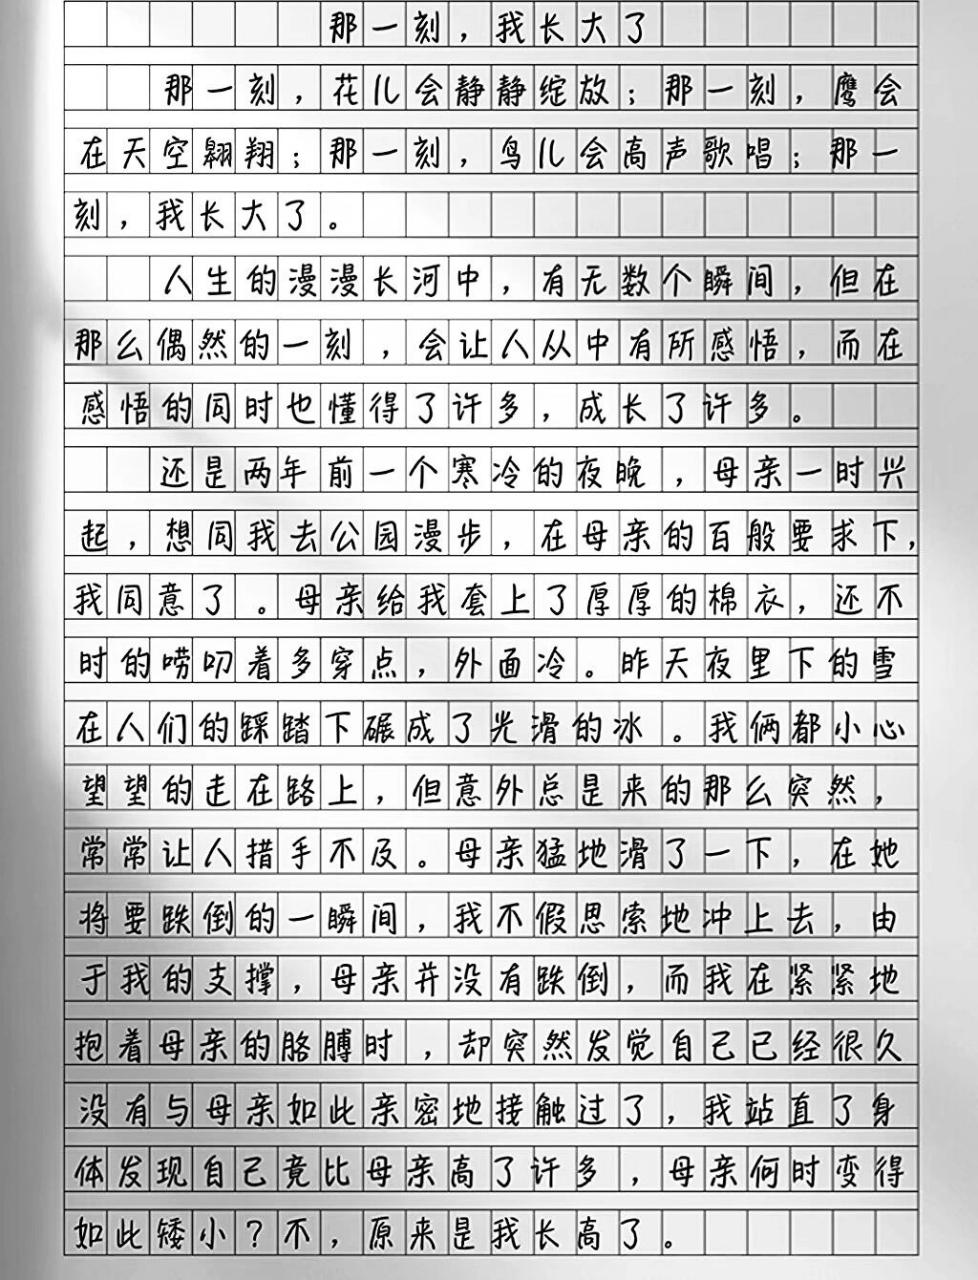 那一刻，我长大了
那一刻，花儿会静静绽放；那一刻，鹰会
在天空翱翔；那一刻，鸟儿会高声歌唱；那一
刻，我长大了。
人生的漫漫长河中，有无数个瞬间，但在
那么偶然的一刻，会让人从中有所感悟，而在
感悟的同时也懂得了许多，成长了许多。
还是两年前一个寒冷的夜晚，母亲一时兴
起，想同我去公园漫步，在母亲的百般要求下，
我同意了。母亲给我套上了厚厚的棉衣，还不
时的唠叨着多穿点，外面冷。昨天夜里下的雪
在人们的踩踏下碾成了光滑的冰。我俩都小心
望望的走在路上，但意外总是来的那么突然，
常常让人措手不及。母亲猛地滑了一下，在她
将要跌倒的一瞬间，我不假思索地冲上去，由
于我的支撑，母亲并没有跌倒，而我在紧紧地
抱着母亲的胳膊时，却突然发觉自己已经很久
没有与母亲如此亲密地接触过了，我站直了身
体发现自己竟比母亲高了许多，母亲何时变得
如此矮小？不，原来是我长高了。